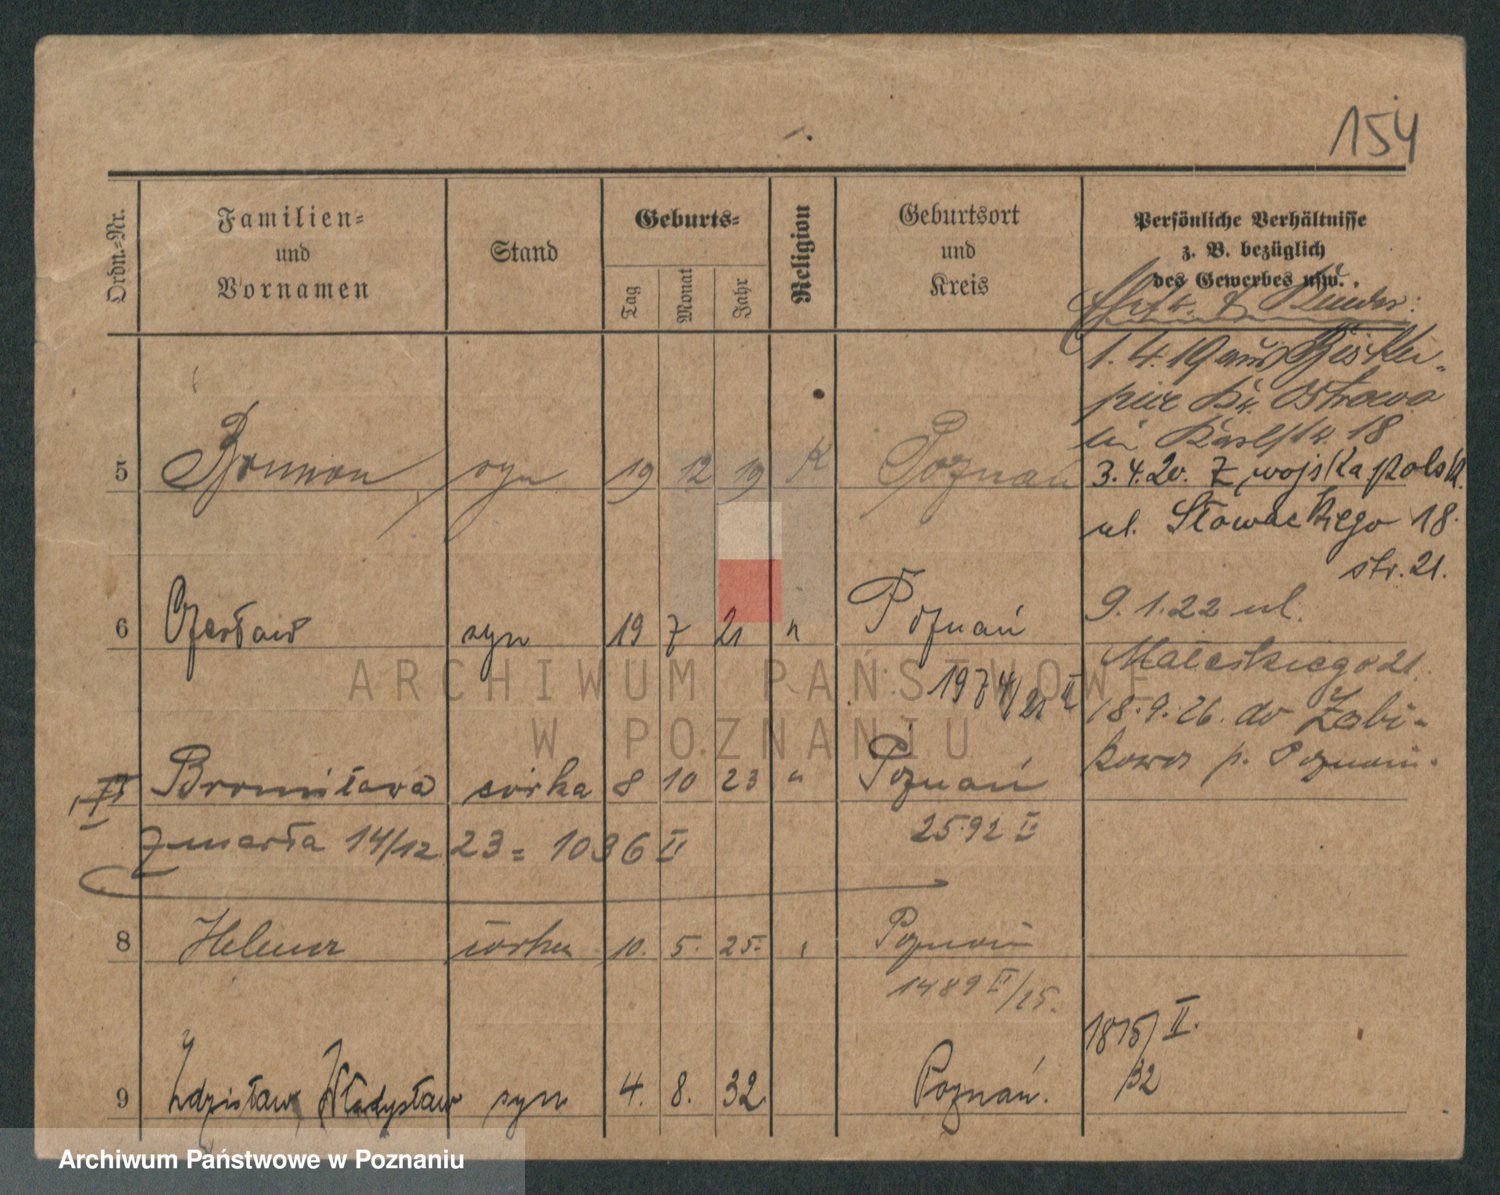 154
Ordn.-Nr.
Familien-
und
Vornamen
Stand
Geburts-
Tag
Monat
Jahr
Religion
Geburtsort
und
Kreis
Persönliche Verhältnisse
z. B. bezüglich
des Gewerbes usw.
Ehefr. u. Kinder:
1. 4. 19 aus Bisku-
pice Kr. Ostrowo
18
3. 4. 20. z wojska polsk.
ul. Słowackiego 18.
str. 21.
9. 1. 22 ul.
Małeckiego 21.
18. 9. 26. do Żabi-
kowo p. Poznań.
5 Roman syn 19 12 19 K Poznań
6 Czesław syn 19 7 21 " Poznań
1974/21 II
Bronisława córka 8 10 23 " Poznań
zmarła 14/12 23 = 1036 II
2592 II
8 Helena córka 10. 5. 25. Poznań
1489 II/25.
1875/ II.
32
9 Zdzisław, Władysław syn 4. 8. 32 Poznań.
ARCHIWUM PAŃSTWOWE
W POZNANIU
Archiwum Państwowe w Poznaniu